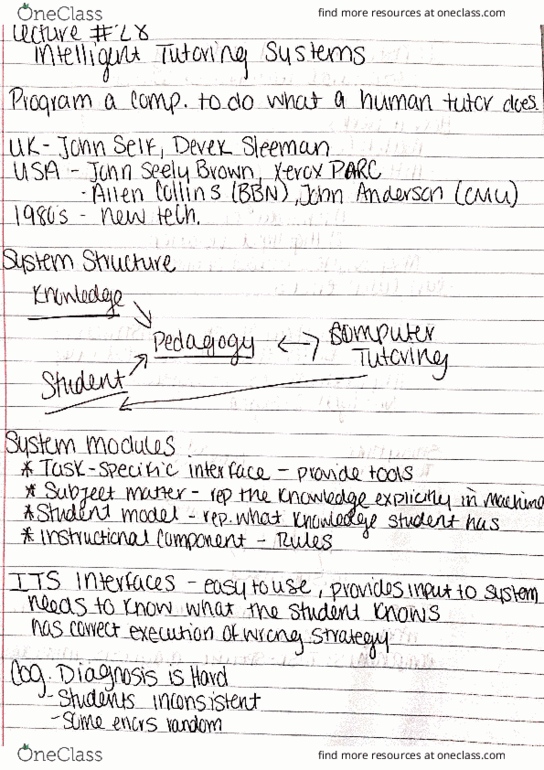 OneClass find more resources at oneclass.com
Lecture #28
Intelligent Tutoring Systems
Program a comp. to do what a human tutor does.
UK - John Self, Derek Sleeman
USA - John Seely Brown, Xerox PARC
- Allen Collins (BBN), John Anderson (CMU)
1980's - new tech.
System Structure
Knowledge
Pedagogy
Computer
Tutoring
Student
System modules
* Task-Specific interface - provide tools
* Subject matter - rep the knowledge explicitly in machine
* Student model - rep. what knowledge student has
* instructional component - Rules
ITS Interfaces - easy to use, provides input to system
needs to know what the student knows
has correct execution of wrong strategy
Cog. Diagnosis is Hard
- Students inconsistent
- Some errors random
OneClass find more resources at oneclass.com